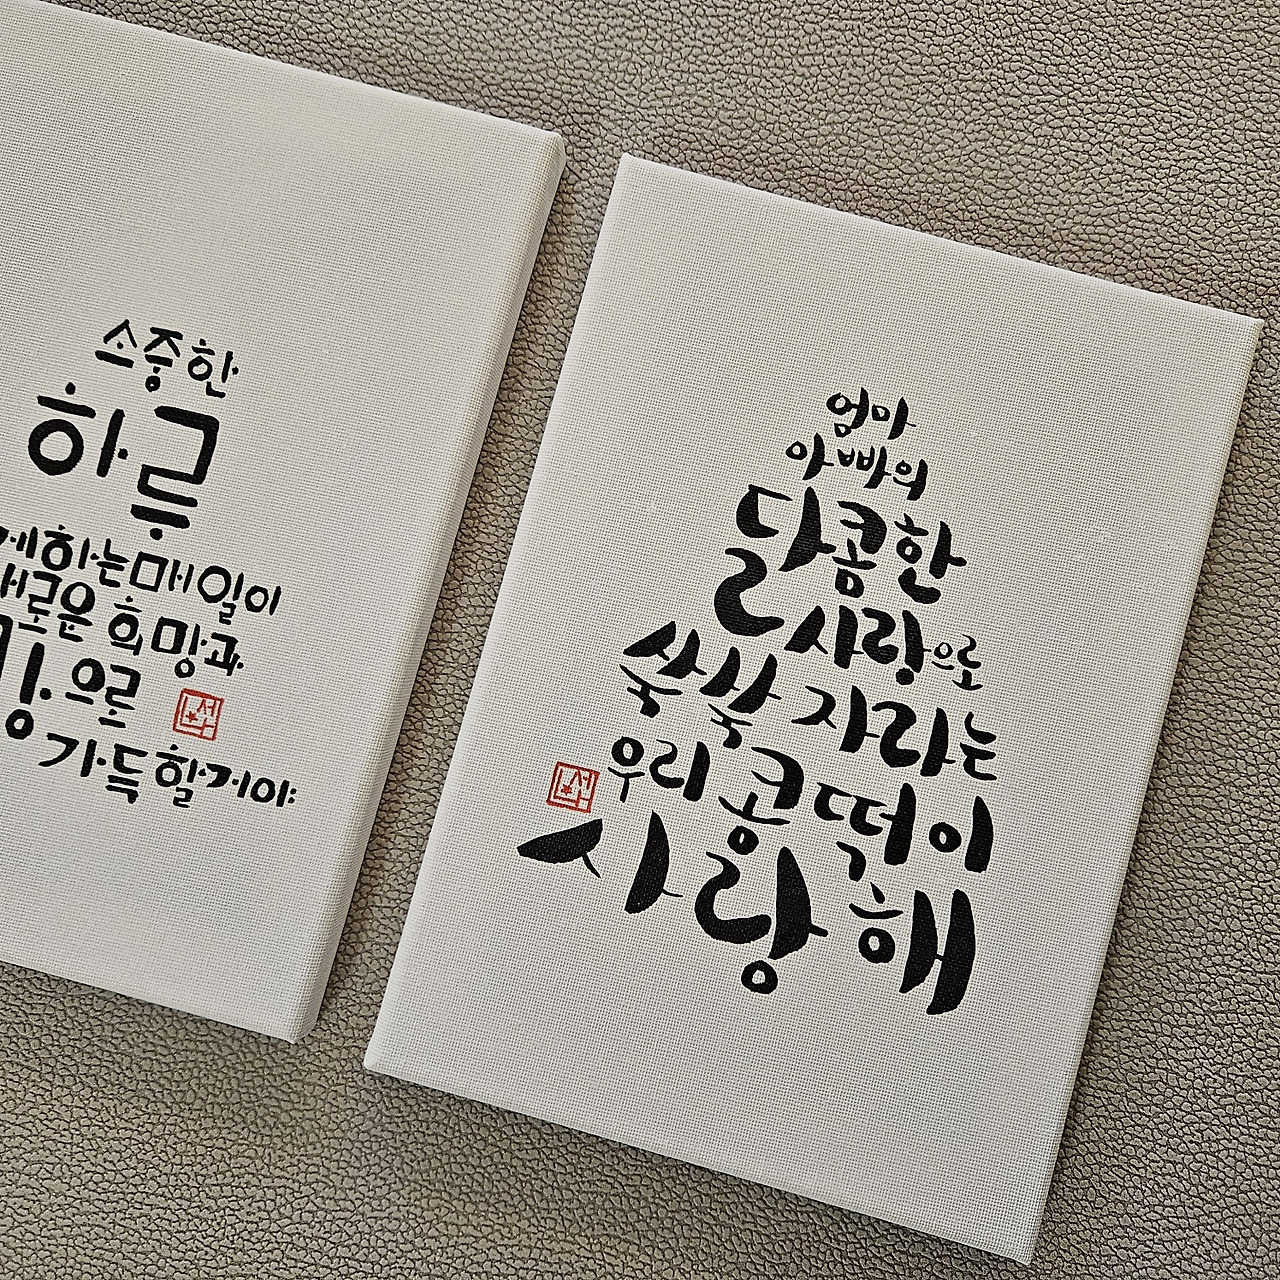 소중한
하루
하는 매일이
새로운 희망과
으로
가득할거야
엄마
아빠의
달콤한
사랑으로
쑥쑥 자라는
우리 콩떡이
사랑해